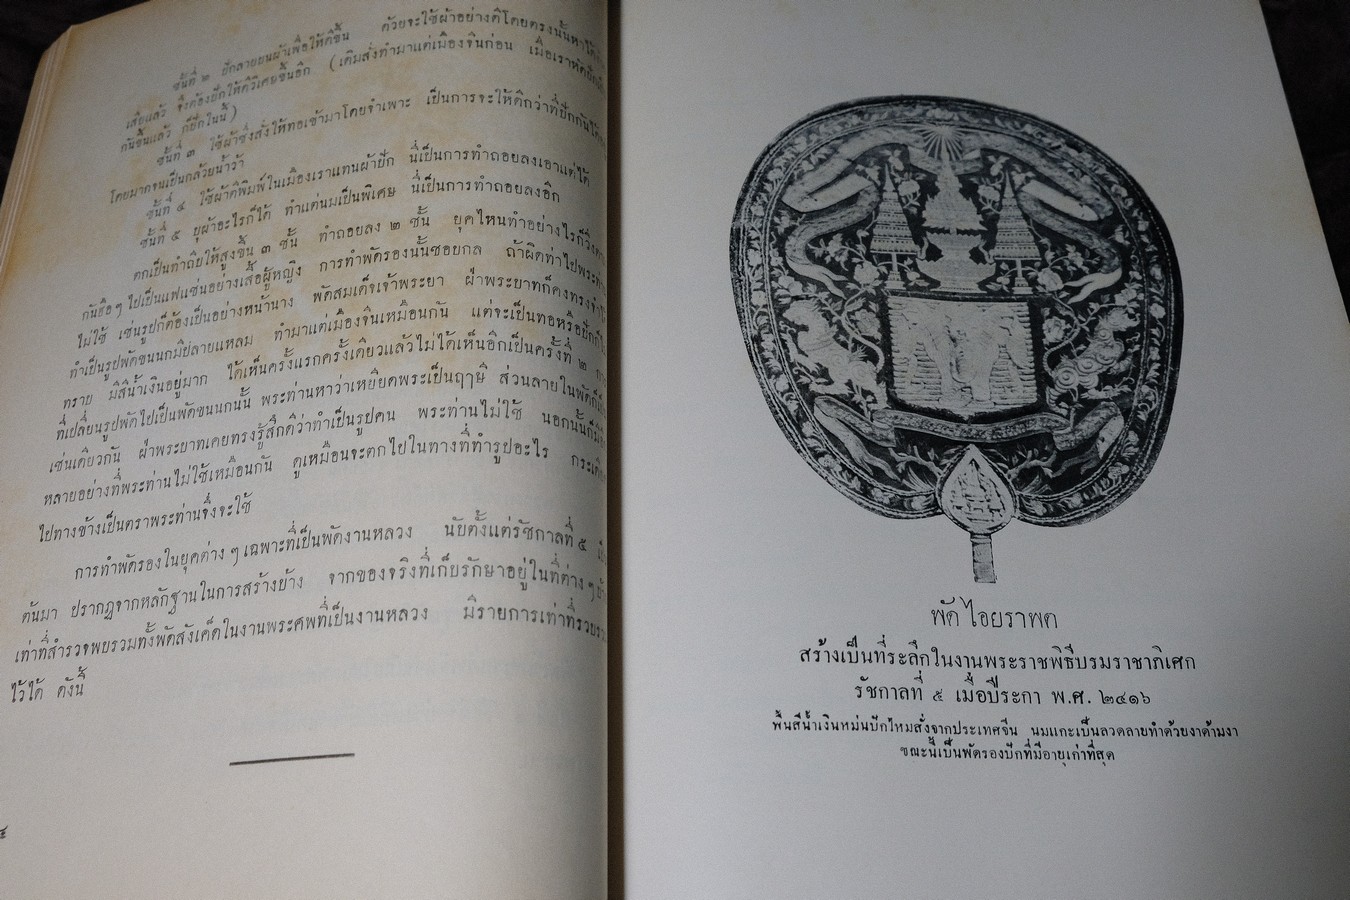 ชั้นที่ ๒ ปักลายบนผ้าเพื่อให้ดีขึ้น ด้วยจะใช้ผ้าอย่างดีโดยตรงนั้นหาได้
เสียแล้ว จึงต้องปักให้ดีวิเศษขึ้นอีก (เดิมสั่งทำมาแต่เมืองจีนก่อน เมื่อเราหัดปัก
กันขึ้นแล้ว ก็ปักในนี้)
ชั้นที่ ๓ ใช้ผ้าซึ่งสั่งให้ทอเข้ามาโดยจำเพาะ เป็นการจะให้ดีกว่าที่ปักกันได้
โดยมากจนเป็นกล้วยน้ำว้า
ชั้นที่ ๔ ใช้ผ้าตีพิมพ์ในเมืองเราแทนผ้าปัก นี่เป็นการทำถอยลงเอาแต่ได้
ชั้นที่ ๕ ยุผ้าอะไรก็ได้ ทำแต่นมเป็นพิเศษ นี่เป็นการทำถอยลงอีก
ตกเป็นทำถีบให้สูงขึ้น ๓ ชั้น ทำถอยลง ๒ ชั้น ยุคไหนทำอย่างไรก็วิ่งตาม
กันฮือๆ ไปเป็นแฟแช่นอย่างเสื้อผู้หญิง การทำพัดรองนั้นชอบกล ถ้าผิดท่าไปพระท่าน
ไม่ใช้ เช่นรูปก็ต้องเป็นอย่างหน้านาง พัดสมเด็จเจ้าพระยา ฝ่าพระบาทก็คงทรงจำได้
ทำเป็นรูปพัดขนนกมีปลายแหลม ทำมาแต่เมืองจีนเหมือนกัน แต่จะเป็นทอหรือปักก็ไม่
ทราบ มีสีน้ำเงินอยู่มาก ได้เห็นครั้งแรกครั้งเดียวแล้วไม่ได้เห็นอีกเป็นครั้งที่ ๒
ที่เปลี่ยนรูปพัดไปเป็นพัดขนนกนั้น พระท่านหาว่าเหยียดพระเป็นฤๅษี ส่วนลายในพัดก็
เช่นเดียวกัน ฝ่าพระบาทเคยทรงรู้สึกดีว่าทำเป็นรูปคน พระท่านไม่ใช้ นอกนั้นก็มี
หลายอย่างที่พระท่านไม่ใช้เหมือนกัน ดูเหมือนจะตกไปในทางที่ทำรูปอะไร
ไปทางข้างเป็นตราพระท่านจึ่งจะใช้
การทำพัดรองในยุคต่าง ๆ เฉพาะที่เป็นพัดงานหลวง นับตั้งแต่รัชกาลที่ ๕
ต้นมา ปรากฏจากหลักฐานในการสร้างบ้าง จากของจริงที่เก็บรักษาอยู่ในที่ต่าง ๆ บ้าง
เท่าที่สำรวจพบรวมทั้งพัดสังเค็ดในงานพระศพที่เป็นงานหลวง มีรายการเท่าที่รวบรวม
ไว้ได้ ดังนี้
พัดไอยราพต
สร้างเป็นที่ระลึกในงานพระราชพิธีบรมราชาภิเศก
รัชกาลที่ ๕ เมื่อปีระกา พ.ศ. ๒๔๑๖
พื้นสีน้ำเงินหม่นปักไหมสั่งจากประเทศจีน นมแกะเป็นลวดลายทำด้วยงาด้ามงา
ขณะนี้เป็นพัดรองปักที่มีอายุเก่าที่สุด